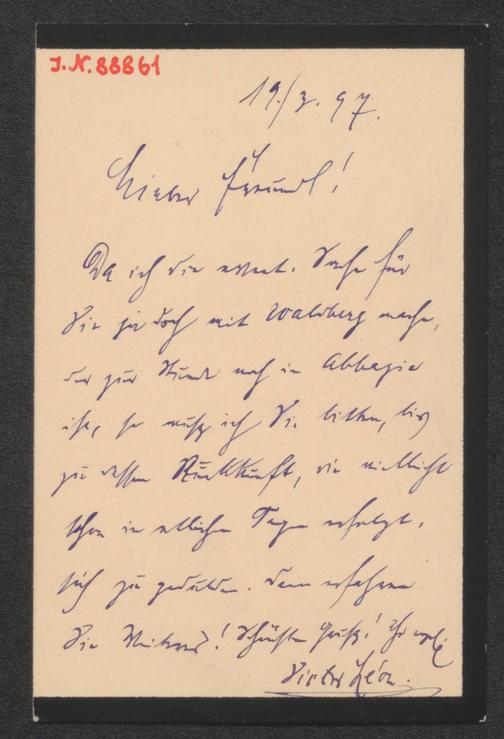 J.N. 88861
19./3. 97.
Lieber Freund!
Da ich die event. Sache für
Sie ja doch mit Waldberg mache,
der zur Stunde noch in Abbazia
ist, so muß ich Sie bitten, bis
zu dessen Rückkunft, die vielleicht
schon in etlichen Tagen erfolgt,
sich zu gedulden. Dann erfahren
Sie Weiteres! Schönsten Gruß! Ihr
Victor Léon.